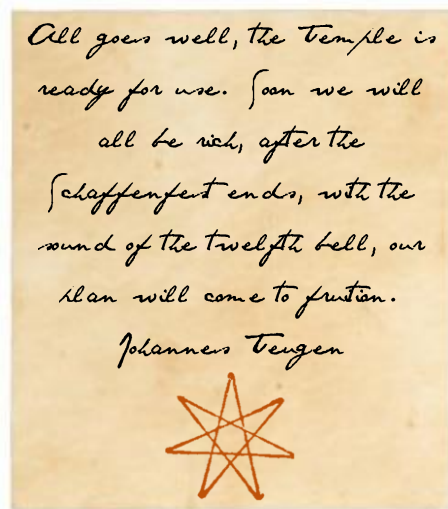 All goes well, the Temple is
ready for use. Soon we will
all be rich, after the
Schaffenfest ends, with the
sound of the twelfth bell, our
plan will come to fruition.
Johannes Teugen